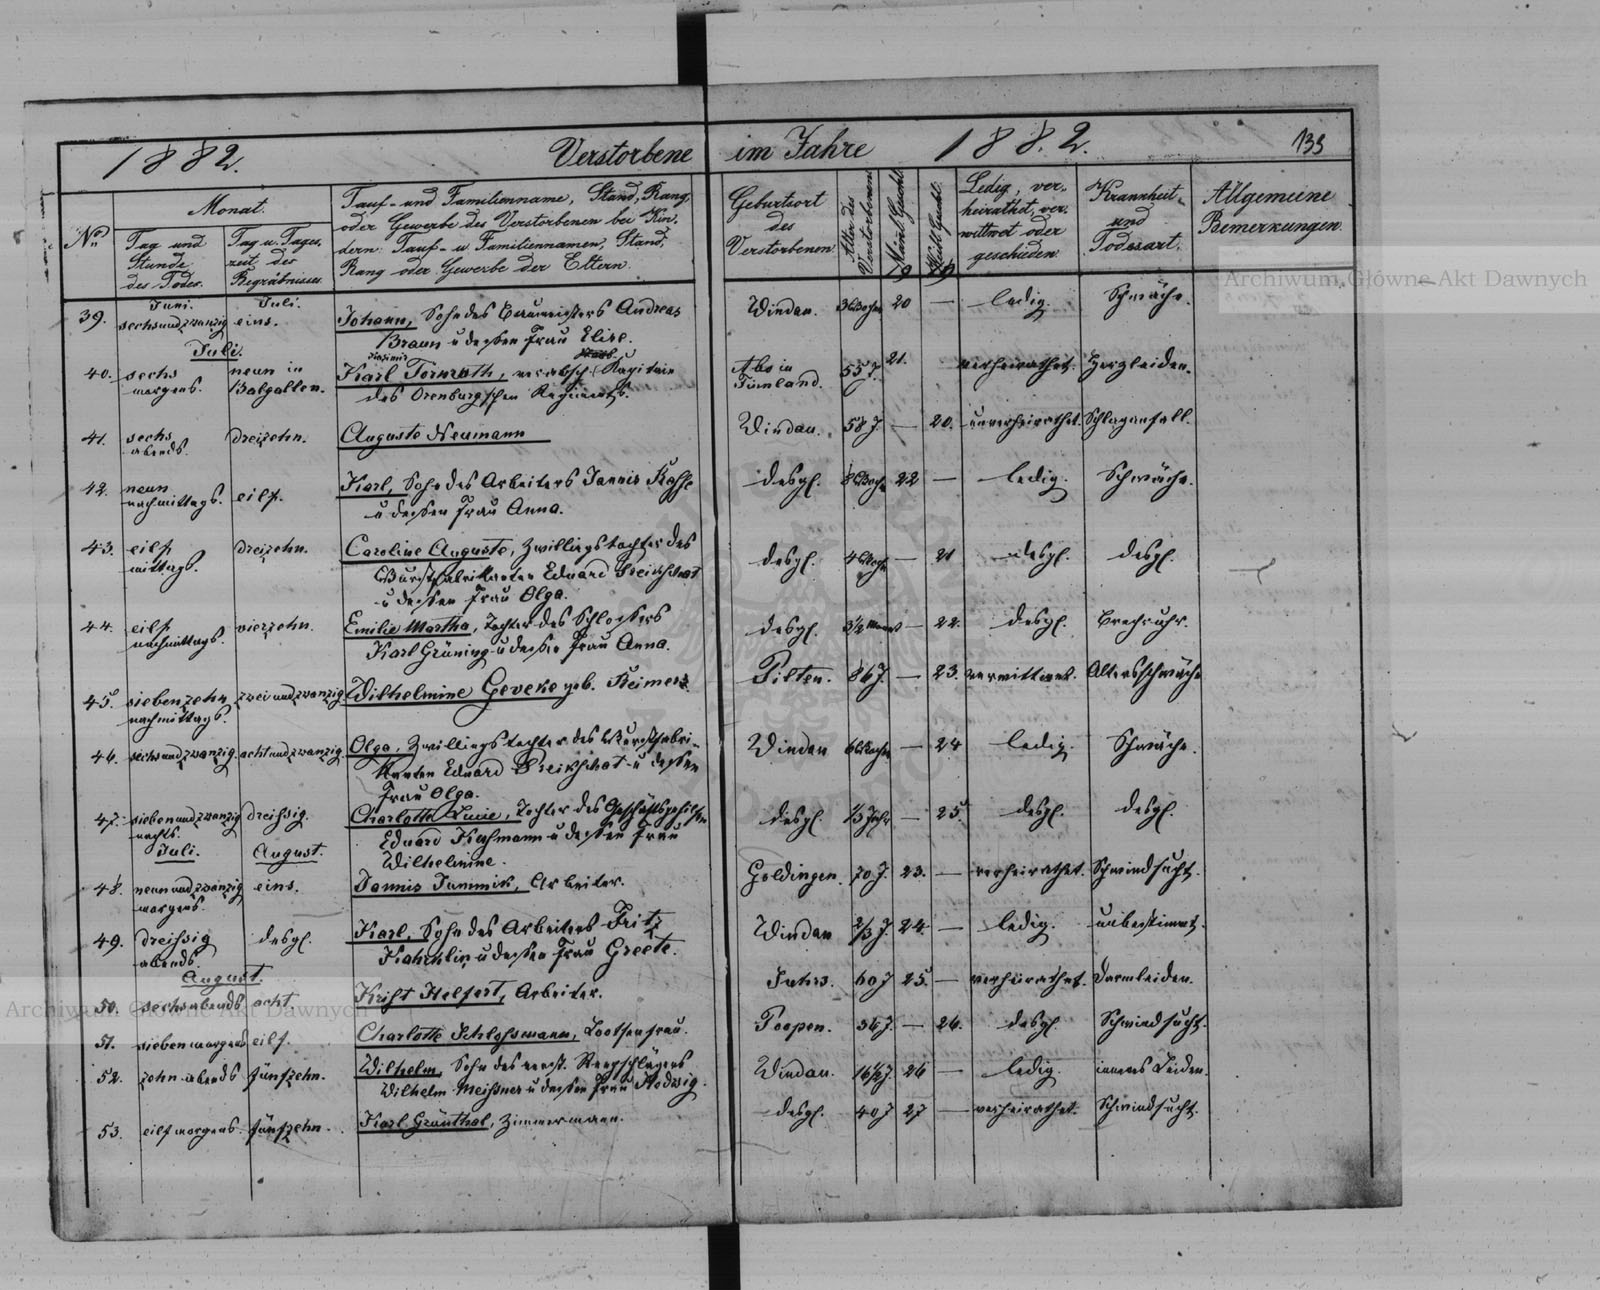 1882. Verstorbene im Jahre 1882. 135
No. Monat. Tauf- und Familienname, Stand, Rang, Geburtsort Alter des Verstorbenen Männl. Geschl. Weibl. Geschl. Ledig, ver- Krankheit Allgemeine
Tag und Tag u. Tages- oder Gewerbe des Verstorbenen bei Kin- des heirathet, ver- und Bemerkungen.
Stunde zeit des dern: Tauf- u. Familiennamen, Stand, Verstorbenen wittwet oder Todesart.
des Todes. Begräbnisses Rang oder Gewerbe der Eltern. geschieden.
19 19
Juni. Juli.
39. sechsundzwanzig eins. Johann, Sohn des Baumeisters Andreas Windau. 3 Wochen 20 — ledig. Schwäche.
Braun u dessen Frau Elise.
Juli.
40. sechs neun in Karl Tornroth, verabsch. Kapitain Abo in 55 J. 21. verheirathet. Herzleiden.
morgens. Balgallen. des Orenburg'schen Regiments. Finnland.
41. sechs dreizehn. Auguste Neumann Windau. 58 J. — 20. unverheirathet. Schlaganfall.
abends.
42. neun eilf. Karl, Sohn des Arbeiters Jannis desgl. 22 — ledig. Schwäche.
nachmittags. u dessen Frau Anna.
43. eilf dreizehn. Caroline Auguste, Zwillingstochter des desgl. 4 Woch — 21 desgl. desgl.
mittags. Wurstfabrikanten Eduard
u dessen Frau Olga.
44. eilf vierzehn. Emilie Martha, Tochter des Schlossers desgl. 3½ Monat — 22. desgl. Brechruhr.
nachmittags. Karl Grüning u dessen Frau Anna.
45. siebenzehn zweiundzwanzig Wilhelmine Geveke geb. Reimers. Pilten. 86 J. — 23. verwittwet. Altersschwäche
nachmittags.
46. sechsundzwanzig. achtundzwanzig Olga, Zwillingstochter des Wurstfabri- Windau 6 Wochen — 24 ledig. Schwäche.
kanten Eduard u dessen
Frau Olga.
47. siebenundzwanzig dreissig. Charlotte Lucie, Tochter des Geschäftsgehilfen desgl. ⅓ Jahr — 25. desgl. desgl.
nachts. Eduard u dessen Frau
Juli. August. Wilhelmine.
48. neunundzwanzig eins. Jannis Jummik, Arbeiter. Goldingen. 70 J. 23. — verheirathet. Schwindsucht.
morgens.
49. dreissig desgl. Karl, Sohn des Arbeiters Fritz Windau ⅔ J. 24. — ledig. unbestimmt.
abends u dessen Frau Greete.
August.
50. sechs abends acht. Krist Helfert, Arbeiter. 60 J 25. — verheirathet. Darmleiden.
51. sieben morgens eilf. Charlotte Schlossmann, Lootsenfrau. Poopen. 36 J. — 26. desgl. Schwindsucht.
52. zehn abends fünfzehn. Wilhelm, Sohn des verst. Reepschlägers Windau. 16½ J. 26 — ledig. inneres Leiden.
Wilhelm Meissner u dessen Frau Hedwig.
53. eilf morgens. fünfzehn. Karl Grünthal, Zimmermann. desgl. 40 J 27 — verheirathet. Schwindsucht.
Archiwum Główne Akt Dawnych
Archiwum Główne Akt Dawnych